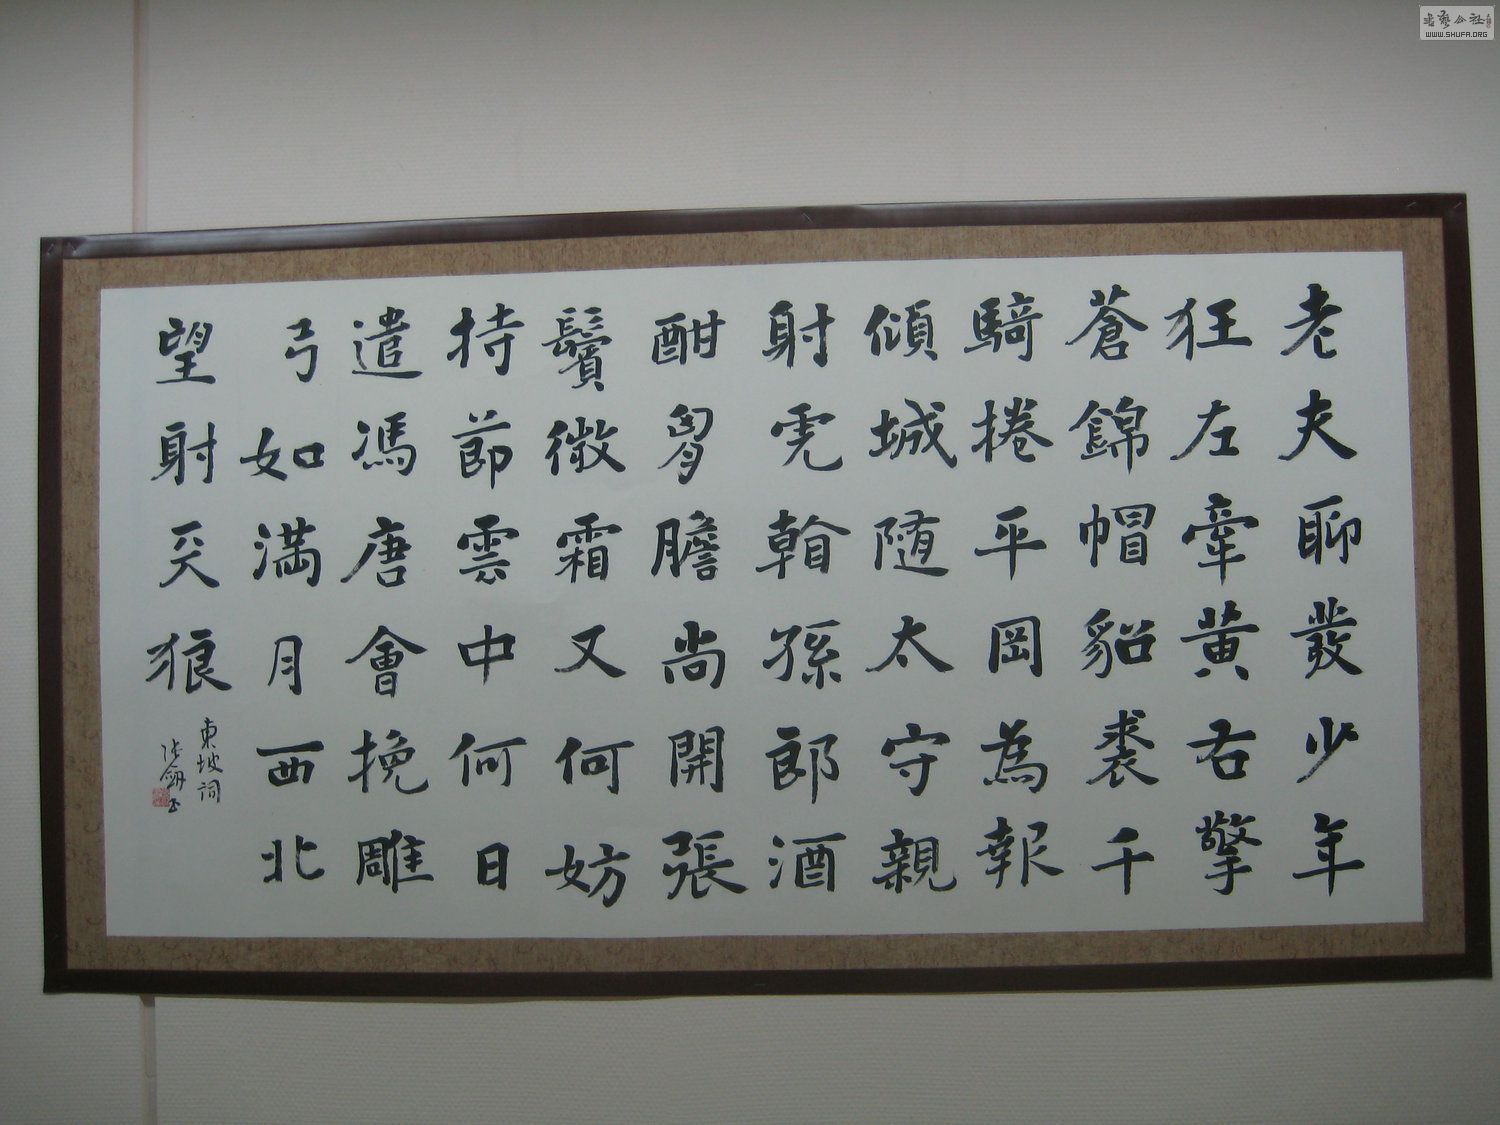 老夫聊發少年
狂左牽黄右擎
蒼錦帽貂裘千
騎捲平岡為報
傾城随太守親
射虎看孫郎酒
酣胷膽尚開張
鬢微霜又何妨
持節雲中何日
遣馮唐會挽雕
弓如満月西北
望射天狼
東坡詞
書藝公社
WWW.SHUFA.ORG